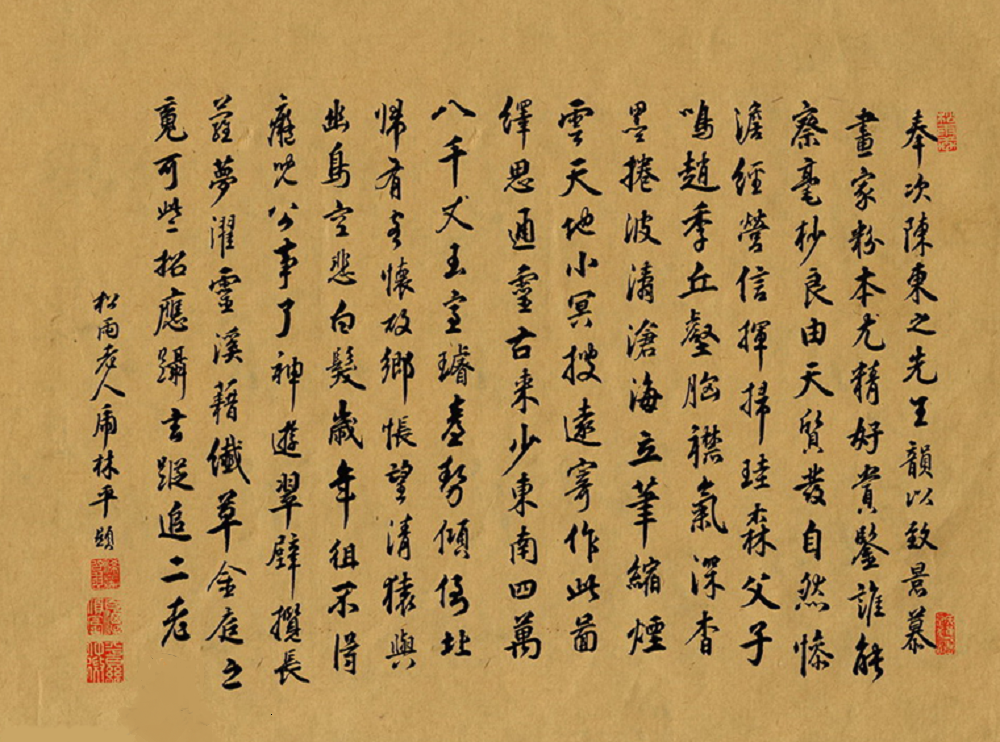 奉次陳東之先生韻以致景慕
畫家粉本尤精好賞鑒誰能
察毫杪良由天質發自然慘
澹經營信揮掃珪森父子
鳴趙季丘壑胸襟氣深杳
墨捲波濤滄海立筆縮煙
雲天地小冥搜遠寄作此啚
繹思通靈古來少東南四萬
八千丈玉室璿臺勢傾倚
歸有客懷故鄉悵望清猿與
幽鳥空悲白髮歲年徂不得
癡兒公事了神遊翠壁攬長
蘿夢濯靈溪藉纖草金庭之
覓可些招應躡玄蹤追二老
松雨老人虎林平題